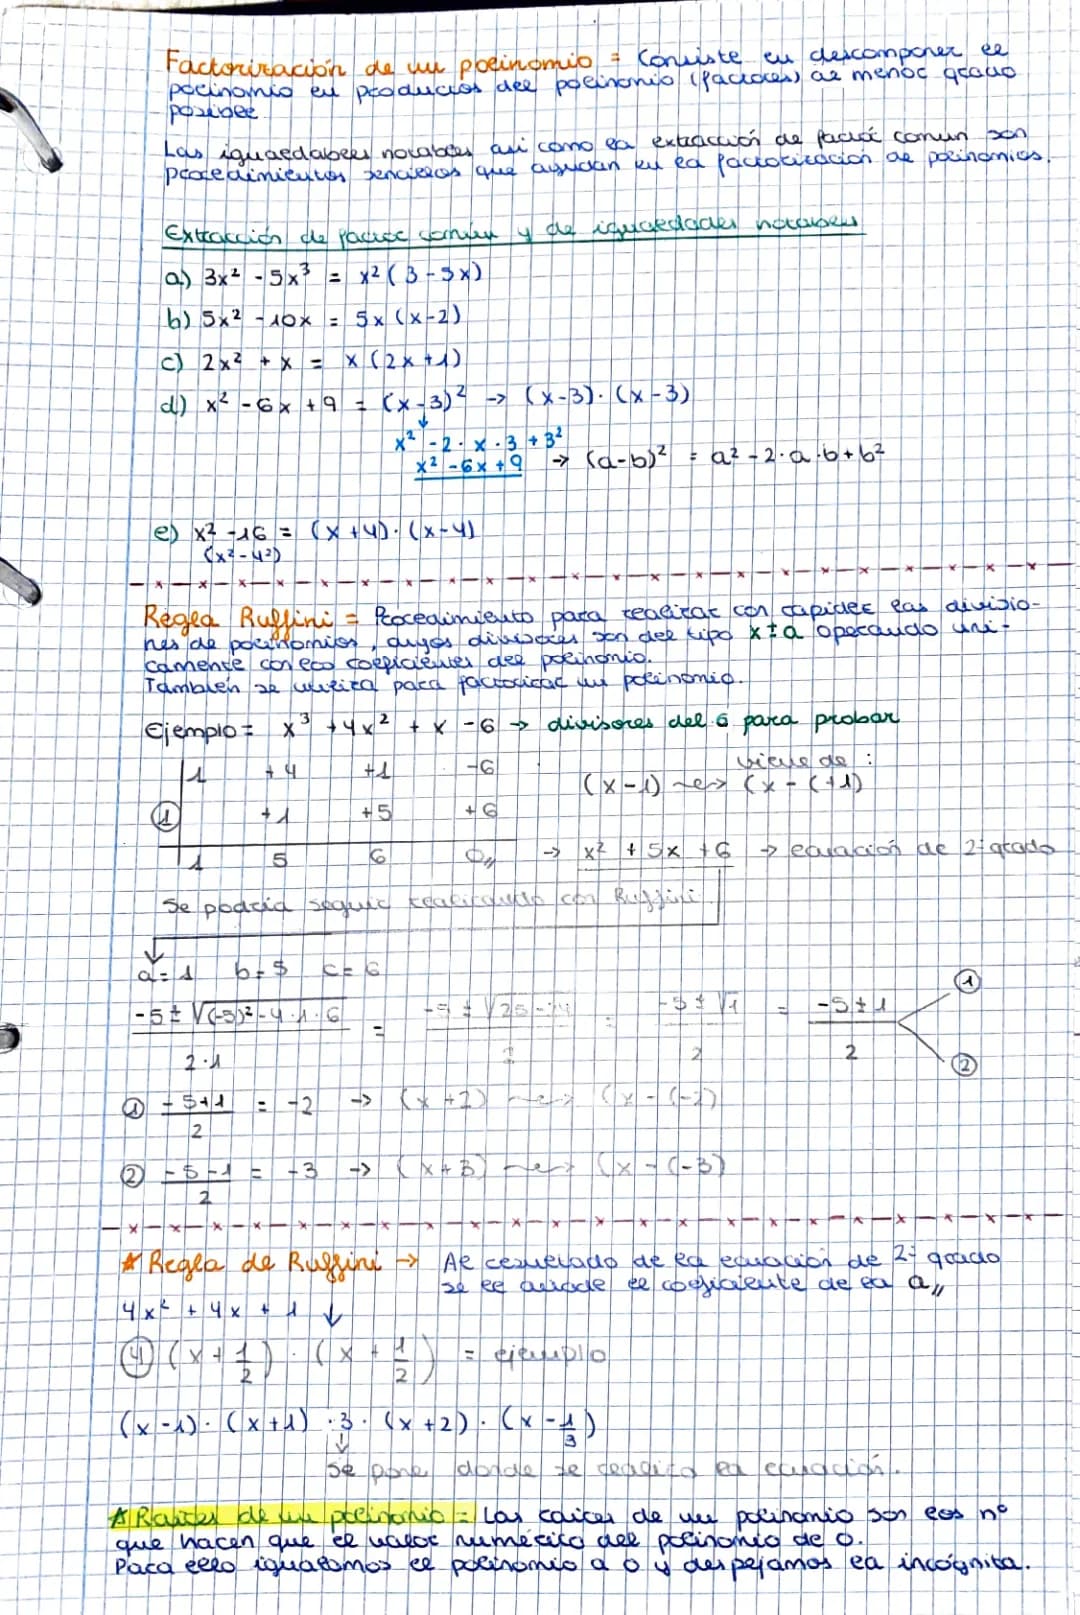 Factorización de un polinomio = Consiste en descomponer el
polinomio en productos del polinomio (factores) al menor grado
posible
Las igualdabes notables asi como la extracción de factor comun son
procedimientos sencillos que ayudan en la factorización de polinomios.
Extracción de factor común y de igualdades notables
a) 3x² - 5x³ = x² (3 - 5x)
b) 5x² - 10x = 5x (x-2)
c) 2x² + x = x (2x+1)
d) x² - 6x + 9 = (x-3)² → (x-3) · (x-3)
x² - 2 · x · 3 + 3²
x² - 6x + 9 → (a-b)² = a² - 2·a·b + b²
e) x² - 16 = (x+4) · (x-4)
(x² - 4²)
Regla Ruffini = Procedimiento para realizar con rapidez las divisio-
nes de polinomios, cuyos divisores son del tipo x±a operando uni-
camente con los coeficientes del polinomio.
También se utiliza para factorizar un polinomio.
Ejemplo = x³ + 4x² + x - 6 → divisores del 6 para probar
1 +4 +1 -6 viene de :
(x-1) ~~> (x-(+1)
① +1 +5 +6
1 5 6 0,, → x² + 5x + 6 → ecuación de 2º grado
Se podria seguir realizando con Ruffini
a = 1 b = 5 c = 6
-5 ± √(-5)² - 4 · 1 · 6 / 2·1 = -5 ± √25-24 / 2 = -5 ± √1 / 2 = -5 ± 1 / 2 ① ②
① -5+1 / 2 = -2 → (x+2) ~~> (x-(-2)
② -5-1 / 2 = -3 → (x+3) ~~> (x-(-3)
* Regla de Ruffini → Al resuelado de la ecuación de 2º grado
se le añade el coeficiente de la a,,
4x² + 4x + 1 ↓
④ (x + 1/2) · (x + 1/2) = ejemplo
(x-1) · (x+1) · 3 · (x+2) · (x - 1/3)
↓
se pone donde se realiza la ecuación.
* Raices de un polinomio = Las raices de un polinomio son los nº
que hacen que el valor numérico del polinomio de 0.
Para ello igualamos el polinomio a 0 y despejamos la incógnita.